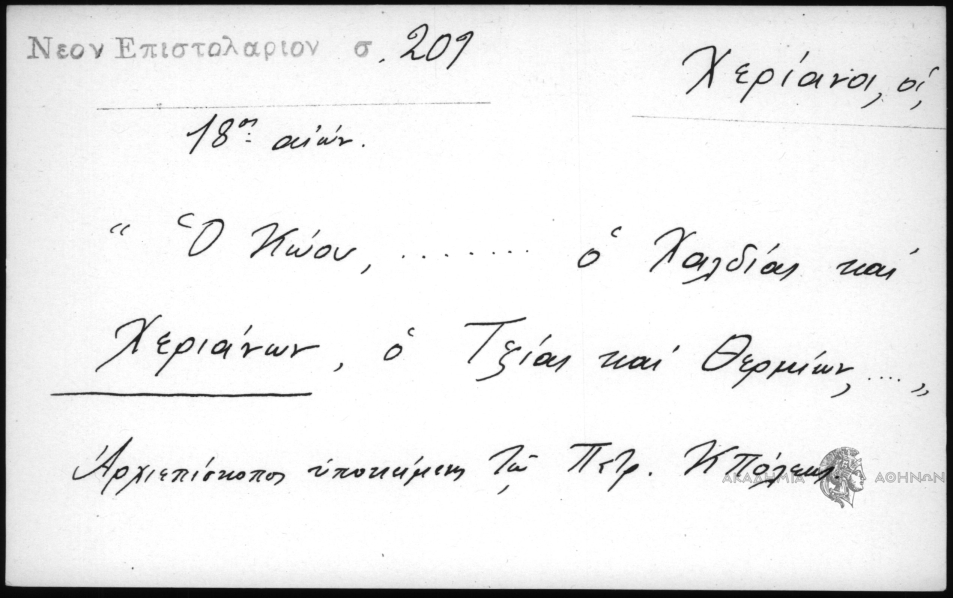 Νεον Επιστολαριον σ. 209
Χερίανα, οἱ,
18ος αἰών.
“ Ὁ Κώου, ........ ὁ Χαλδίας καὶ
Χεριάνων, ὁ Τζίας καὶ Θερμίων, .... „
Ἀρχιεπίσκοπος ὑποκείμενος τῷ Πατρ. ΚΠόλεως.
ΑΚΑΔΗΜΙΑ ΑΘΗΝΩΝ